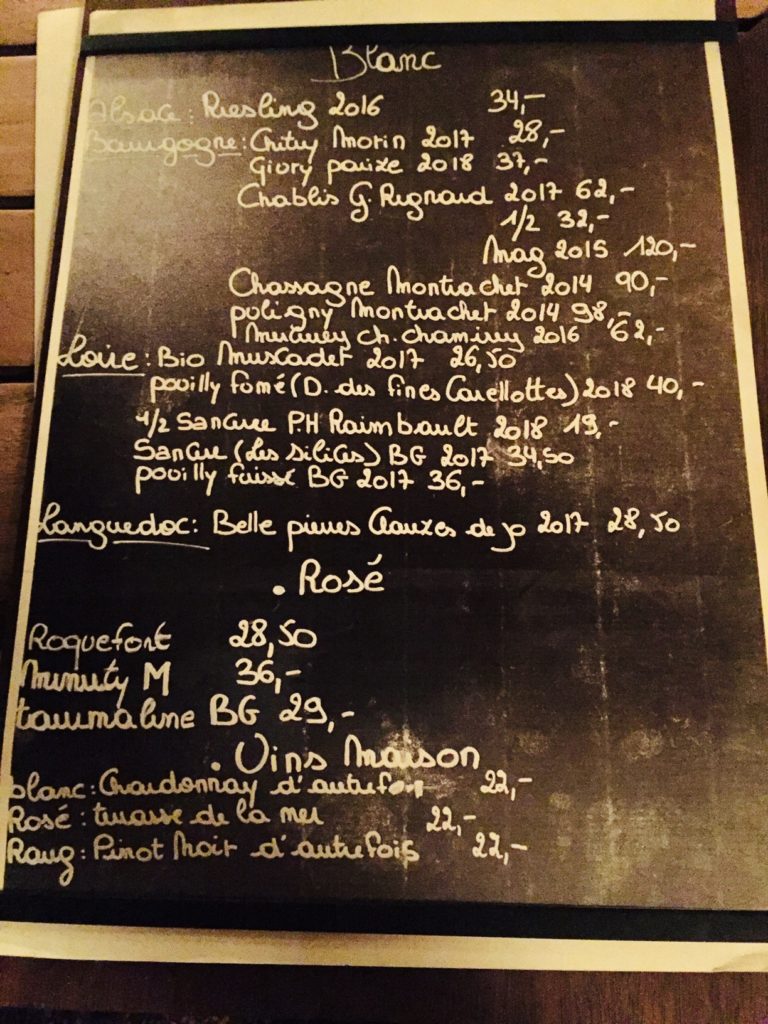 Blanc
Alsace: Riesling 2016 34,-
Bourgogne: Chitry Morin 2017 28,-
Givry pauize 2018 37,-
Chablis G. Regnard 2017 62,-
1/2 32,-
Mag 2015 120,-
Chassagne Montrachet 2014 90,-
puligny Montrachet 2014 98,-
Mercurey ch. chamirey 2016 62,-
Loire: Bio Muscadet 2017 26,50
pouilly fumé (D. des fines Carellottes) 2018 40,-
1/2 Sancerre P.H Raimbault 2018 19,-
Sancerre (Les silices) BG 2017 34,50
pouilly fuissé BG 2017 36,-
Languedoc: Belle pierres Clauzes de jo 2017 28,50
. Rosé
Roquefort 28,50
Minuty M 36,-
tourmaline BG 29,-
. Vins Maison
blanc: Chardonnay d'autrefois 22,-
Rosé: terrasse de la mer 22,-
Roug: Pinot Noir d'autrefois 22,-